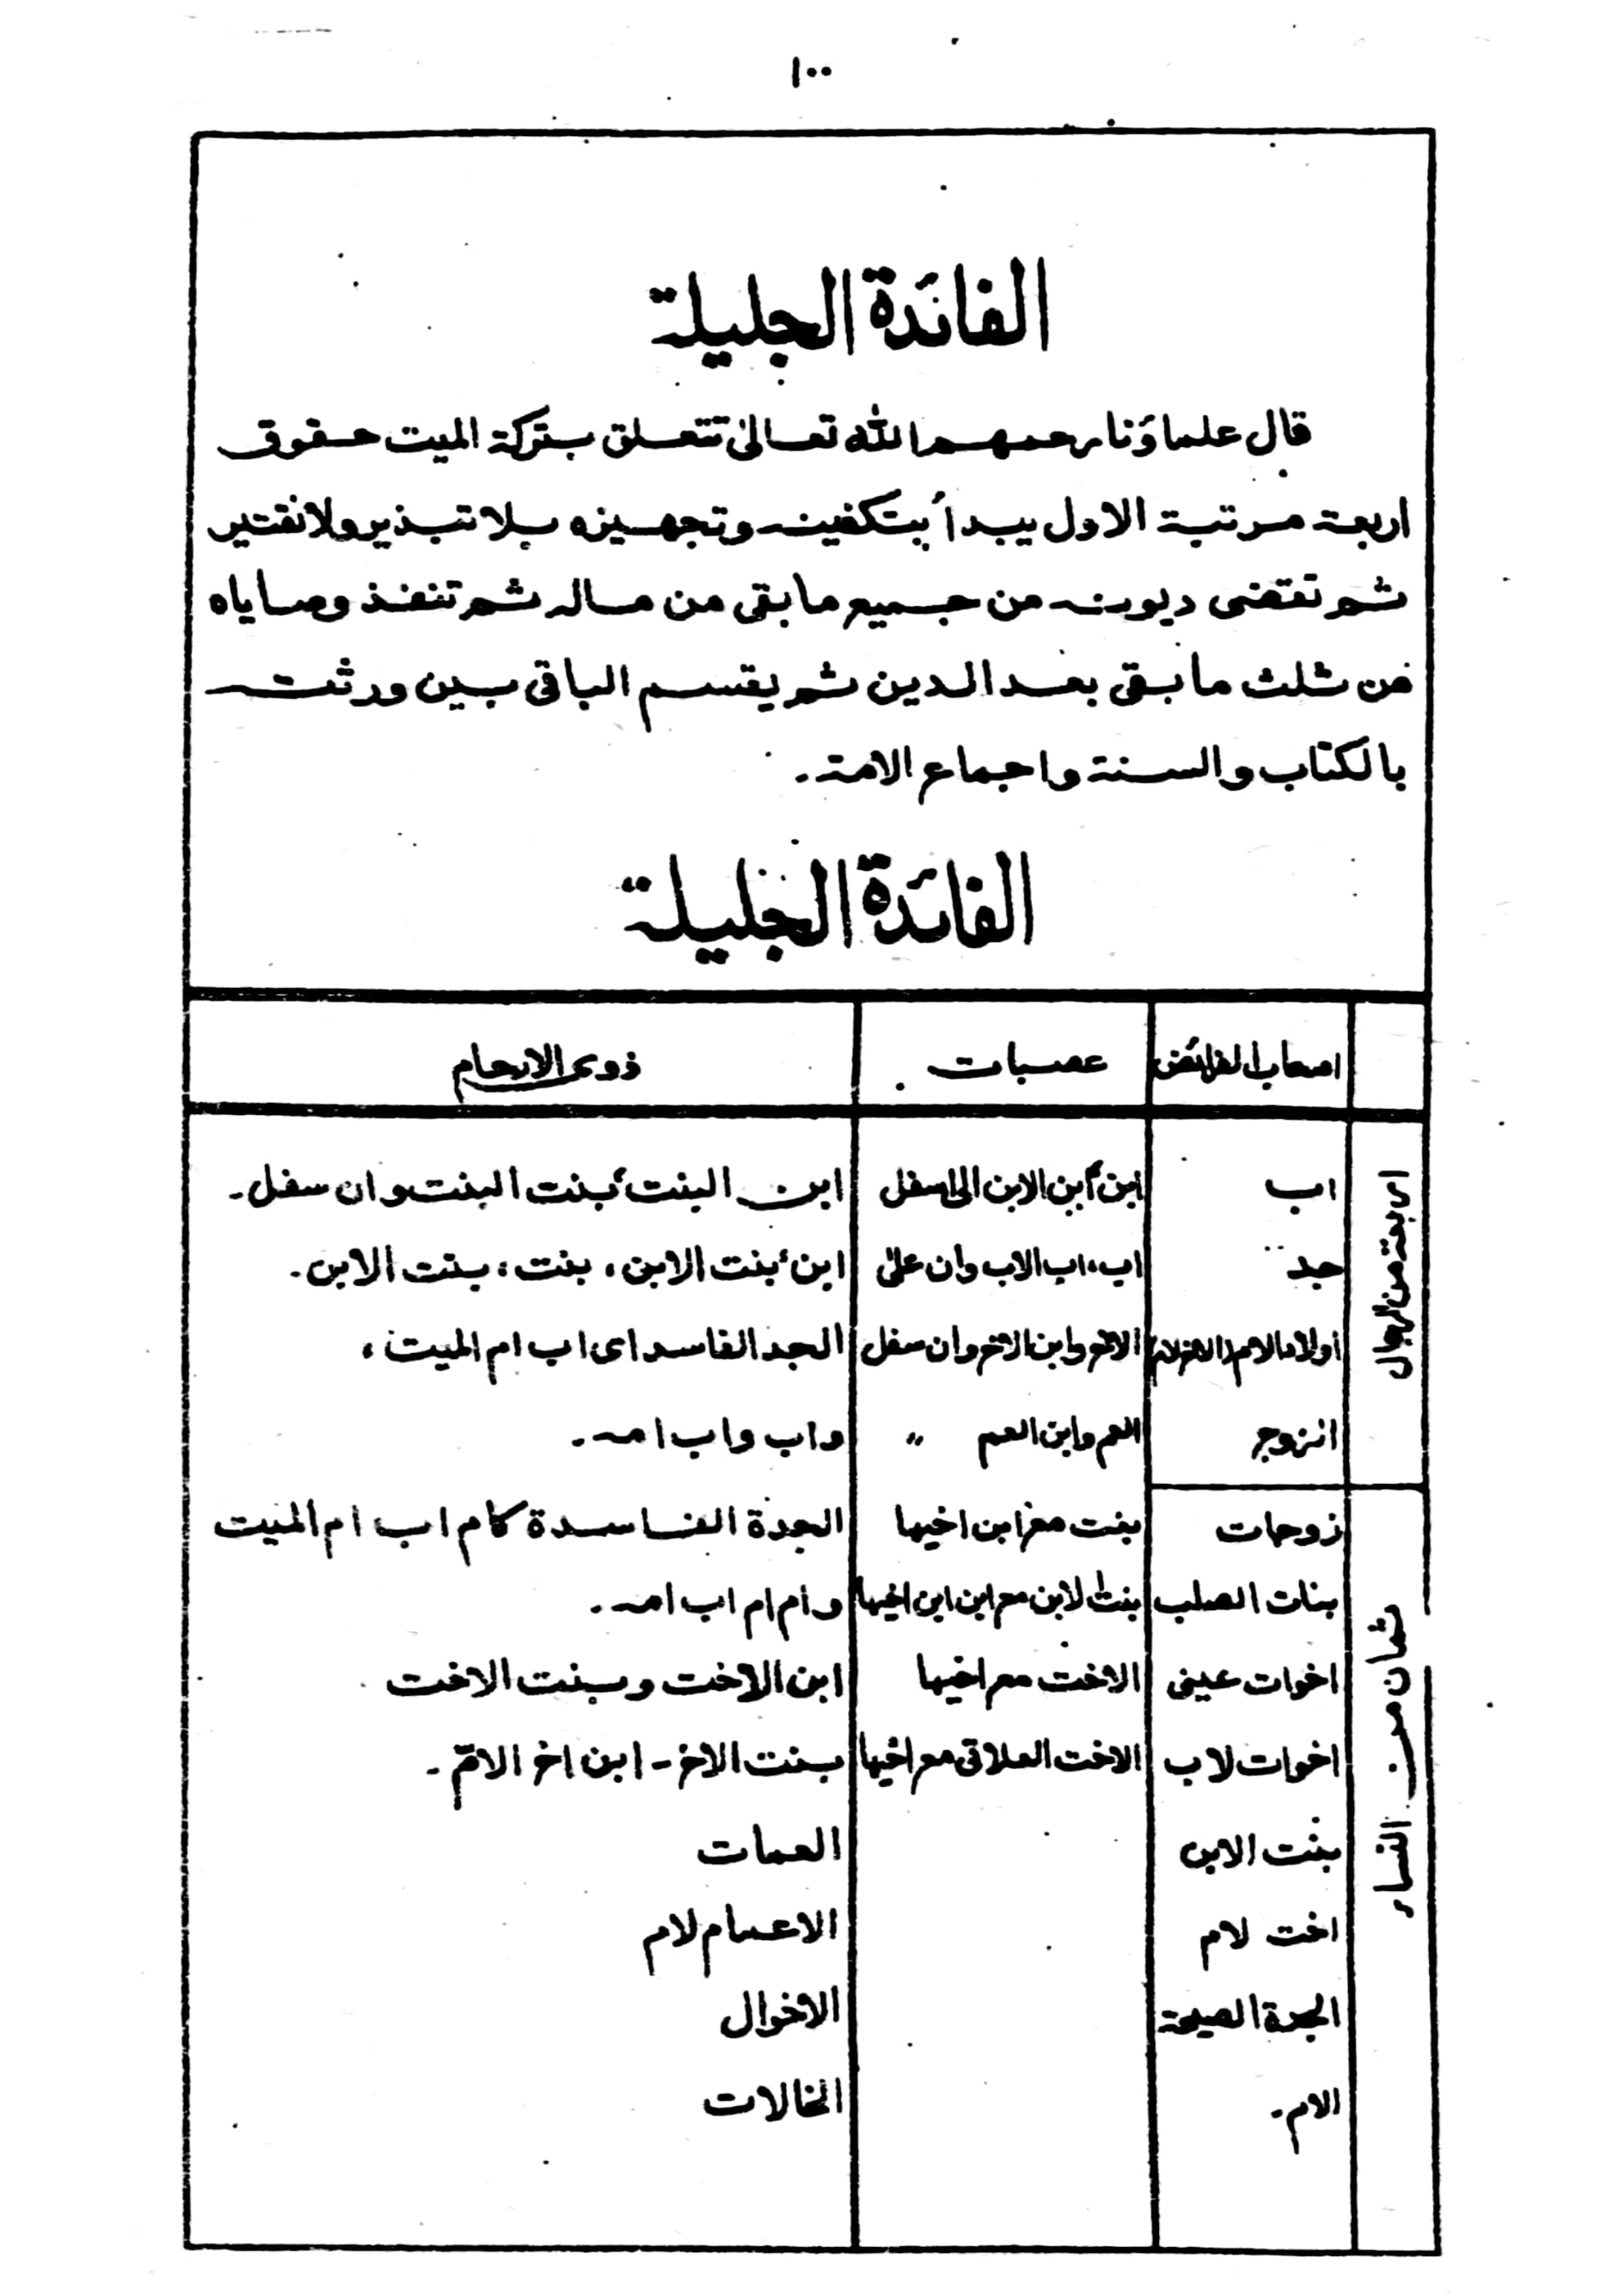 ١٠٠
الفائدة الجليلة
قال علماؤنا رحمهم الله تعالىٰ تتعلق بتركة الميت حقوق
اربعة مرتبة الاول يبدأ بتكفينه وتجهيزه بلا تبذير ولا تقتير
ثم تقضى ديونه من جميع ما بقى من ماله ثم تنفذ وصاياه
من ثلث ما بقى بعد الدين ثم يقسم الباقى بين ورثته
بالكتاب والسنة واجماع الامة۔
الفائدة الجليلة
اصحاب الفرائض عصبات ذوى الارحام
اربعة من الرجال
اب ابن، ابن الابن الى اسفل ابن البنت، بنت البنت وان سفل۔
جد اب، اب الاب وان علىٰ ابن، بنت الابن، بنت، بنت الابن۔
اولاد الام (الاخ لام) الاخ وابن الاخ وان سفل الجد الفاسد اى اب ام الميت،
الزوج العم وابن العم 〃 واب واب امه۔
ثمان من النساء
زوجات بنت مع ابن اخيها الجدة الفاسدة كام اب ام الميت
بنات الصلب بنت الابن مع ابن ابن اخيها وام ام اب امه۔
اخوات عينى الاخت مع اخيها ابن الاخت وبنت الاخت
اخوات لاب الاخت العلاتى مع اخيها بنت الاخ۔ ابن اخ الامّ۔
بنت الابن العمات
اخت لام الاعمام لام
الجدة الصيحة الاخوال
الام۔ الخالات